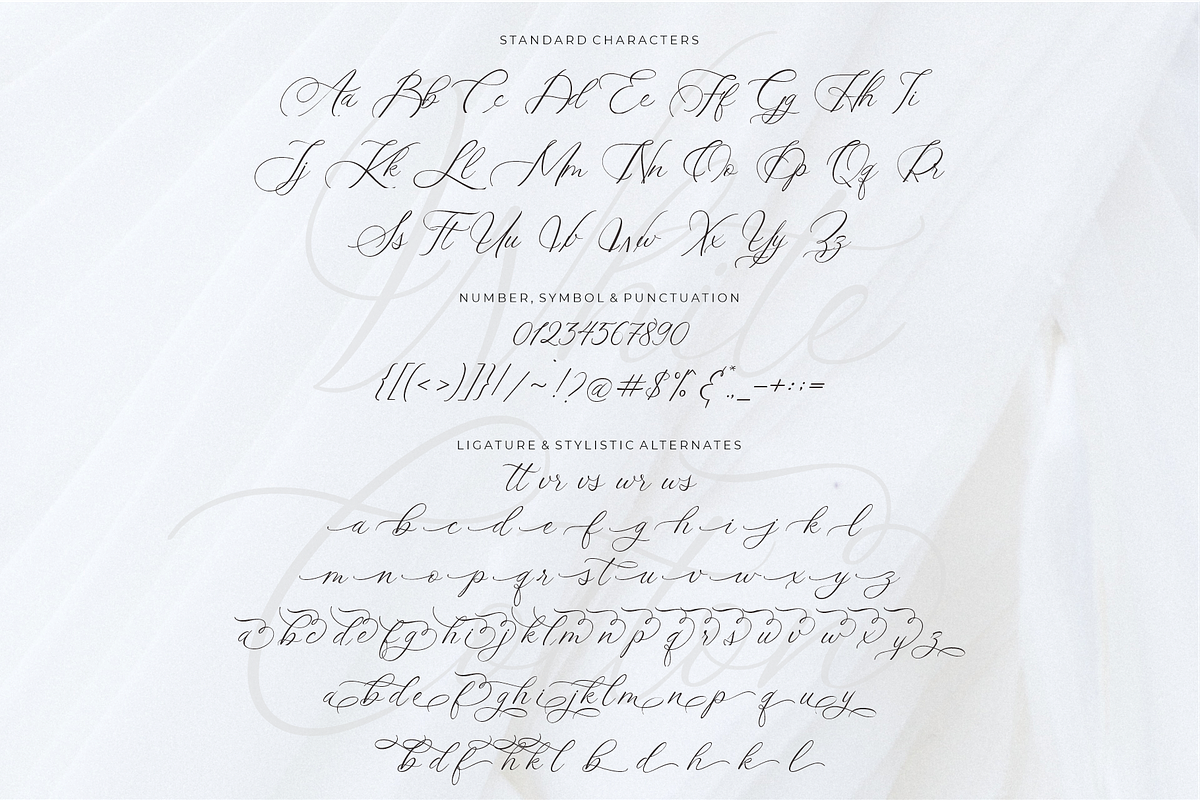 STANDARD CHARACTERS
Aa Bb Cc Dd Ee Ff Gg Hh Ii
Jj Kk Ll Mm Nn Oo Pp Qq Rr
Ss Tt Uu Vv Ww Xx Yy Zz
NUMBER, SYMBOL & PUNCTUATION
01234567890
{[(<>)]}|/~!?@#$%&"*.,_-+:;=
LIGATURE & STYLISTIC ALTERNATES
tt vr vs wr ws
a b c d e f g h i j k l
m n o p q r s t u v w x y z
a b c d e f g h i j k l m n p q r s u v w x y z
a b d e f g h i j k l m n p q u y
b d f h k l b d h k l
White
Cotton